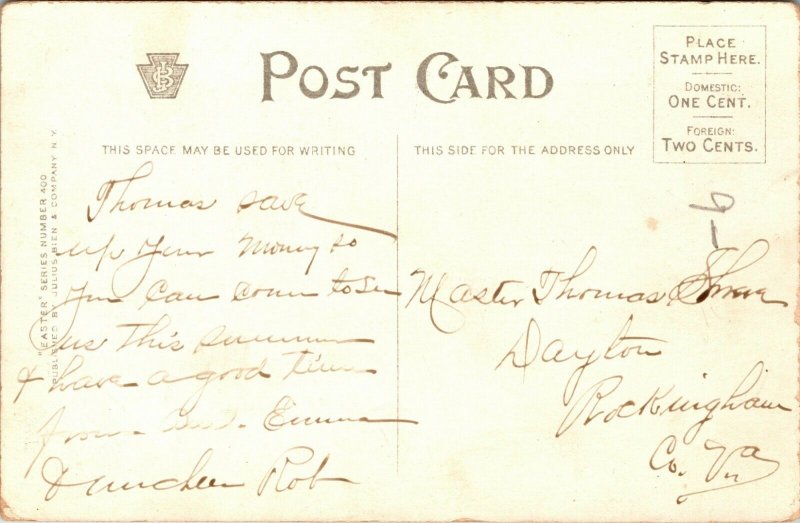 POST CARD
PLACE
STAMP HERE.
DOMESTIC:
ONE CENT.
FOREIGN:
TWO CENTS.
THIS SPACE MAY BE USED FOR WRITING
THIS SIDE FOR THE ADDRESS ONLY
"EASTER" SERIES NUMBER 400
PUBLISHED BY JULIUS BIEN & COMPANY N.Y.
Thomas save
up your money so
you can come to see
us this summer
& have a good time
from Emma
Rob
Master Thomas
Dayton
Rockingham
Co. Va